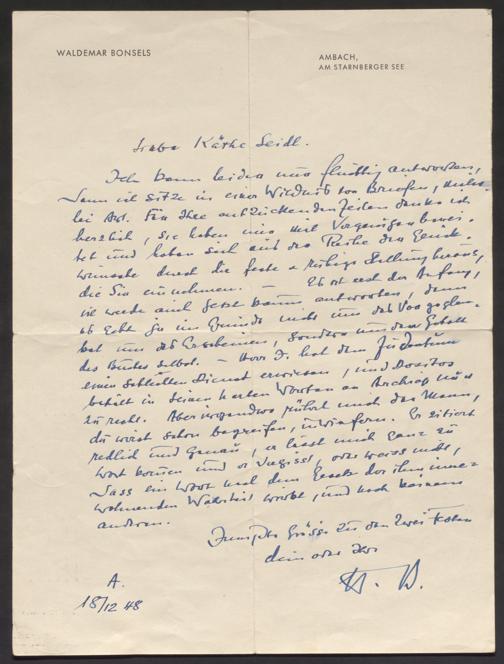 WALDEMAR BONSELS
AMBACH,
AM STARNBERGER SEE
Liebe Käthe Seidl.
Ich kann leider nur flüchtig antworten,
denn ich sitze in einer Wildnis von Briefen,
bei Art. Für Ihre entzückenden Zeilen danke ich
herzlich, sie haben mir viel Vergnügen berei-
tet und haben sich aus der Reihe der Glück-
wünsche durch die feste u ruhige Stellung heraus,
die Sie einnehmen. — Es ist erst der Anfang,
sie werde auch jetzt kaum antworten, denn
es geht ja im Grunde nicht um das
hat um das Erscheinen, sondern um den Gehalt
des Buches selbst. — Herr F. hat dem Judentum
einen schlechten Dienst erwiesen, und Dositos
behält in seinen harten Worten an Archap nur
zu recht. Aber irgendwo rührt mich der Mann,
du wirst schon begreifen, inwiefern. Er zitiert
redlich und genau, er lässt mich ganz zu
Wort kommen und er vergisst, oder weiss nicht,
dass ein Wort nach dem Gesetz der ihm inne-
wohnenden Wahrheit wirbt, und nach keinem
anderen.
Grüsse zu den zwei Festen
dein oder Ihr
W. B.
A.
18/12 48